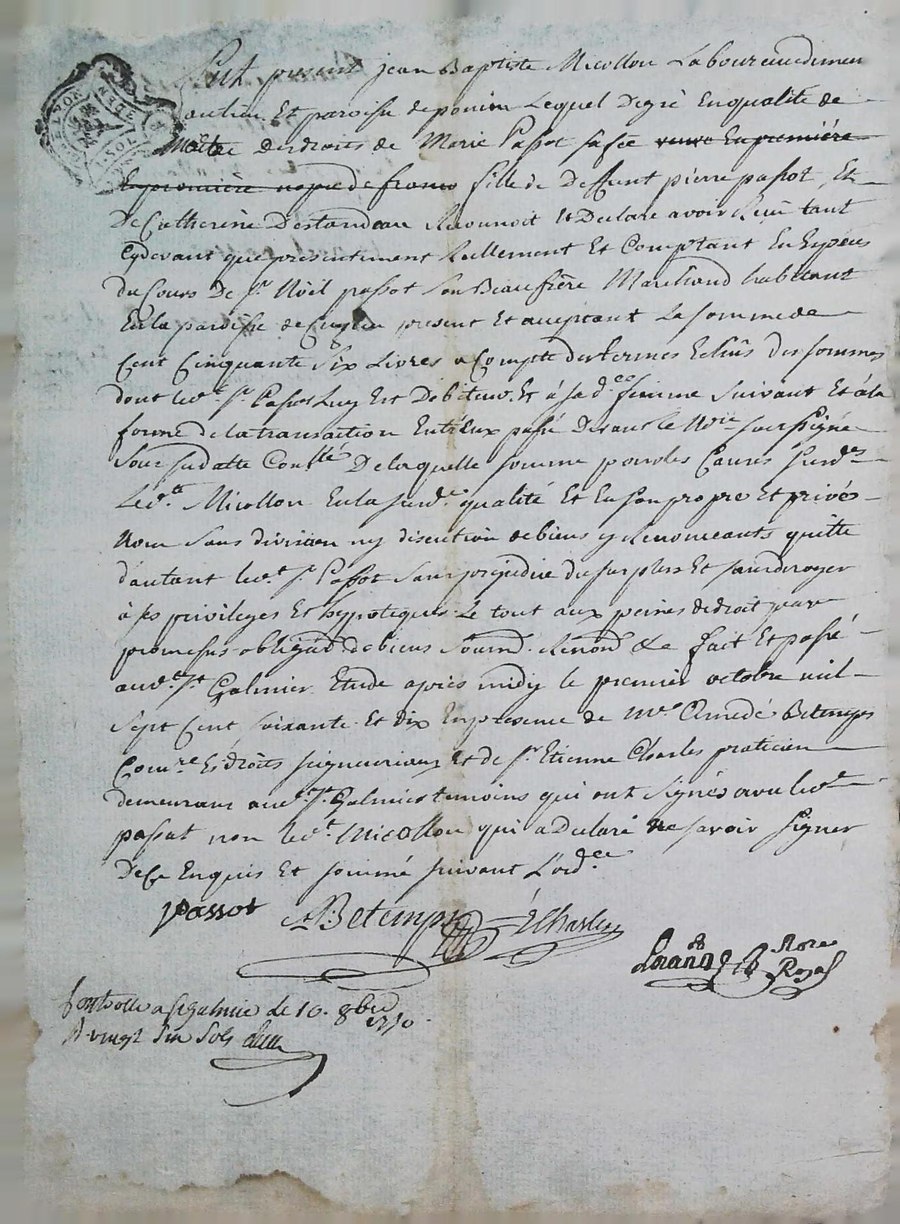 Fut present jean Baptiste Micollon Laboureur demeu
au lieu Et paroisse de ponim Lequel De gré En qualité de
Maître Des droits de Marie Passot sa fée veuve En premiére
En premiére nopce de franc fille de Deffunt pierre passot, Et
De Catherine Destandeau Reconnoit Et Declare avoir Reçû tant
Cydevant que presentement Reellement Et Comptant En Espéces
du Cours De Sr. Nöel passot Son Beaufrère Marchand habitant
En la paroisse de present Et aceptant La Somme de
Cent Cinquante Six Livres a Compte des termes Echûs des sommes
dont led.t Sr. Passot Luy Est Debiteur Et à sad.e femme Suivant Et à la
forme de la transaction Entr'Eux passé Devant le Nore. Soussigné
Sous sa datte Conllé De laquelle somme pour les Causes surd.es
Led.t Micollon En la surd.e qualité Et En son propre Et privés
Nom Sans division ny discution de biens y Renonceants quitte
d'autant led.t Sr. Passot Sans prejudice du surplus Et sans deroger
à ses privileges Et hypoteques Le tout aux peines de droit par
promesses obligaôn de biens Soumd. Renond &c fait Et passé
aud.t St. Galmier Etude après midy le premier octobre mil
Sept Cent Soixante Et Dix En presence de Me. Amedé Betemps
Comre. Es droits seigneuriaux Et de Sr. Etienne Charles praticien
demeurans aud.t St. Galmier temoins qui ont Signés avec led.t
passot non led.t Micollon qui a Declaré ne savoir Signer
De Ce Enquis Et sommé suivant L'ord.ce
Passot ABetemps ECharles
Nore
Royal
Controllé a St galmier le 10. 8bre 1770.
R vingt Six Sols